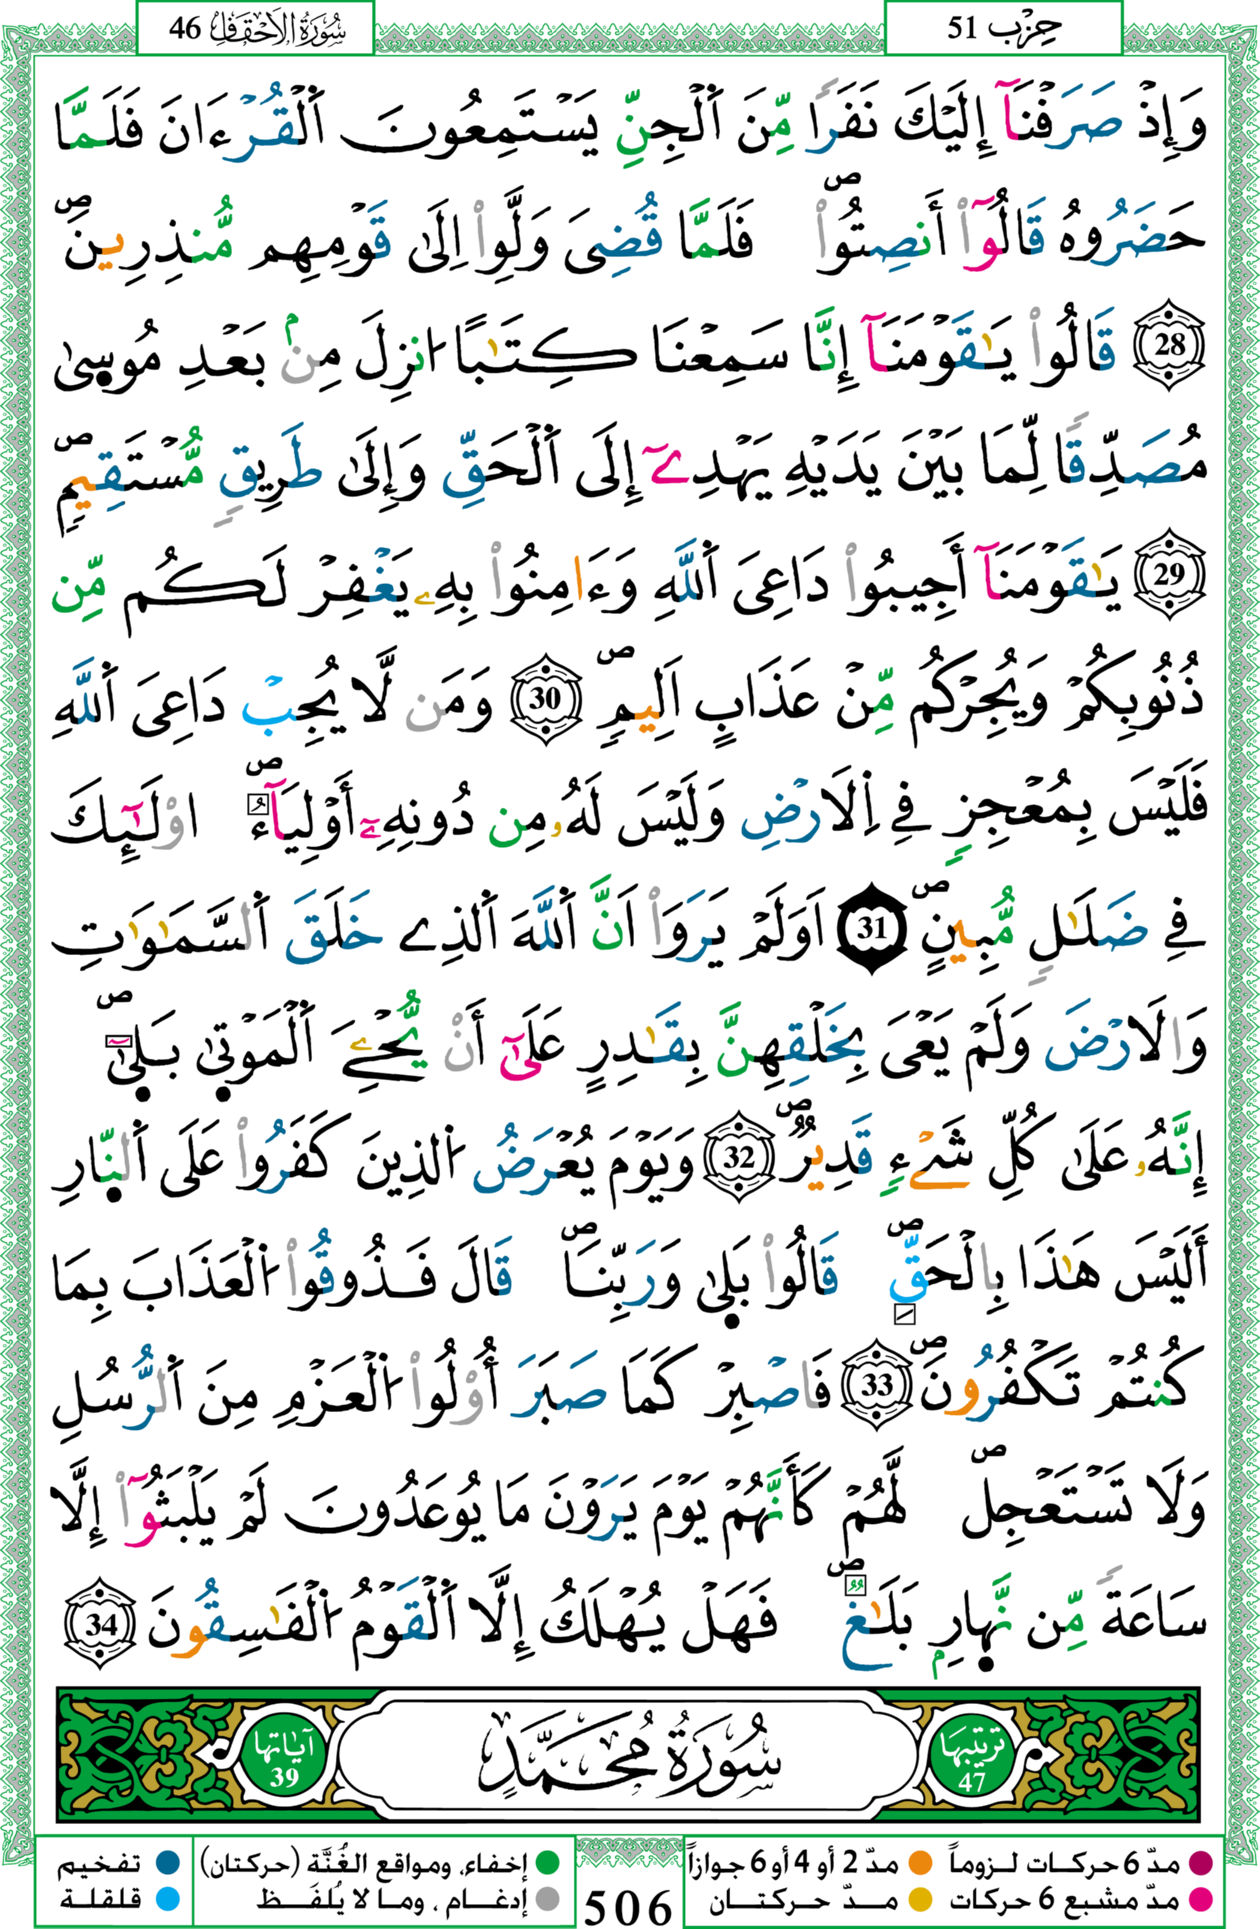 سُورَةُ الْأَحْقَافِ 46
حِزْب 51
وَإِذْ صَرَفْنَآ إِلَيْكَ نَفَرًا مِّنَ اَ۬لْجِنِّ يَسْتَمِعُونَ اَ۬لْقُرْءَانَ فَلَمَّا
حَضَرُوهُ قَالُوٓاْ أَنصِتُواْۖ فَلَمَّا قُضِىَ وَلَّوِاْ اِلَىٰ قَوْمِهِم مُّنذِرِينَۖ
28 قَالُواْ يَٰقَوْمَنَآ إِنَّا سَمِعْنَا كِتَٰبًا ا۟نزِلَ مِنۢ بَعْدِ مُوسىٰ
مُصَدِّقًا لِّمَا بَيْنَ يَدَيْهِ يَهْدِےٓ إِلَى اَ۬لْحَقِّ وَإِلَىٰ طَرِيقٍ مُّسْتَقِيمٍۖ
29 يَٰقَوْمَنَآ أَجِيبُواْ دَاعِىَ اَ۬للَّهِ وَءَامِنُواْ بِهِۦ يَغْفِرْ لَكُم مِّن
ذُنُوبِكُمْ وَيُجِرْكُم مِّنْ عَذَابٍ اَلِيمٍۖ 30 وَمَن لَّا يُجِبْ دَاعِىَ اَ۬للَّهِ
فَلَيْسَ بِمُعْجِزٍ فِے اِ۬لَارْضِ وَلَيْسَ لَهُۥ مِن دُونِهِۦٓ أَوْلِيَآءُۖ ا۟وْلَٰٓئِكَ
فِے ضَلَٰلٍ مُّبِينٍۖ 31 اَوَلَمْ يَرَوَاْ اَنَّ اَ۬للَّهَ اَ۬لذِے خَلَقَ اَ۬لسَّمَٰوَٰتِ
وَالَارْضَ وَلَمْ يَعْىَ بِخَلْقِهِنَّ بِقَٰدِرٍ عَلَىٰٓ أَنْ يُّحْـِۧىَ اَ۬لْمَوْتىٰ بَلىٰٓۖ
إِنَّهُۥ عَلَىٰ كُلِّ شَےْءٍ قَدِيرٌۖ 32 وَيَوْمَ يُعْرَضُ اُ۬لذِينَ كَفَرُواْ عَلَى اَ۬لنّ۪ارِ
أَلَيْسَ هَٰذَا بِالْحَقِّۖ قَالُواْ بَلىٰ وَرَبِّنَاۖ قَالَ فَذُوقُواْ اُ۬لْعَذَابَ بِمَا
كُنتُمْ تَكْفُرُونَۖ 33 فَاصْبِرْ كَمَا صَبَرَ أُوْلُواْ اُ۬لْعَزْمِ مِنَ اَ۬لرُّسُلِ
وَلَا تَسْتَعْجِلۖ لَّهُمْ كَأَنَّهُمْ يَوْمَ يَرَوْنَ مَا يُوعَدُونَ لَمْ يَلْبَثُوٓاْ إِلَّا
سَاعَةً مِّن نَّه۪ارِۢ بَلَٰغٌۖ فَهَلْ يُهْلَكُ إِلَّا اَ۬لْقَوْمُ اُ۬لْفَٰسِقُونَ 34
ترتيبها 47
سُورَةُ مُحَمَّدٍ
آيَاتها 39
مدّ 6 حركات لـزوماً
مدّ 2 أو 4 أو 6 جوازاً
إخفاء، ومواقع الغُنَّة (حركتان)
تفخيم
مدّ مشبع 6 حركات
مــدّ حركتــان
إدغـام ، ومـا لا يُلفَـظ
قلقلة
506